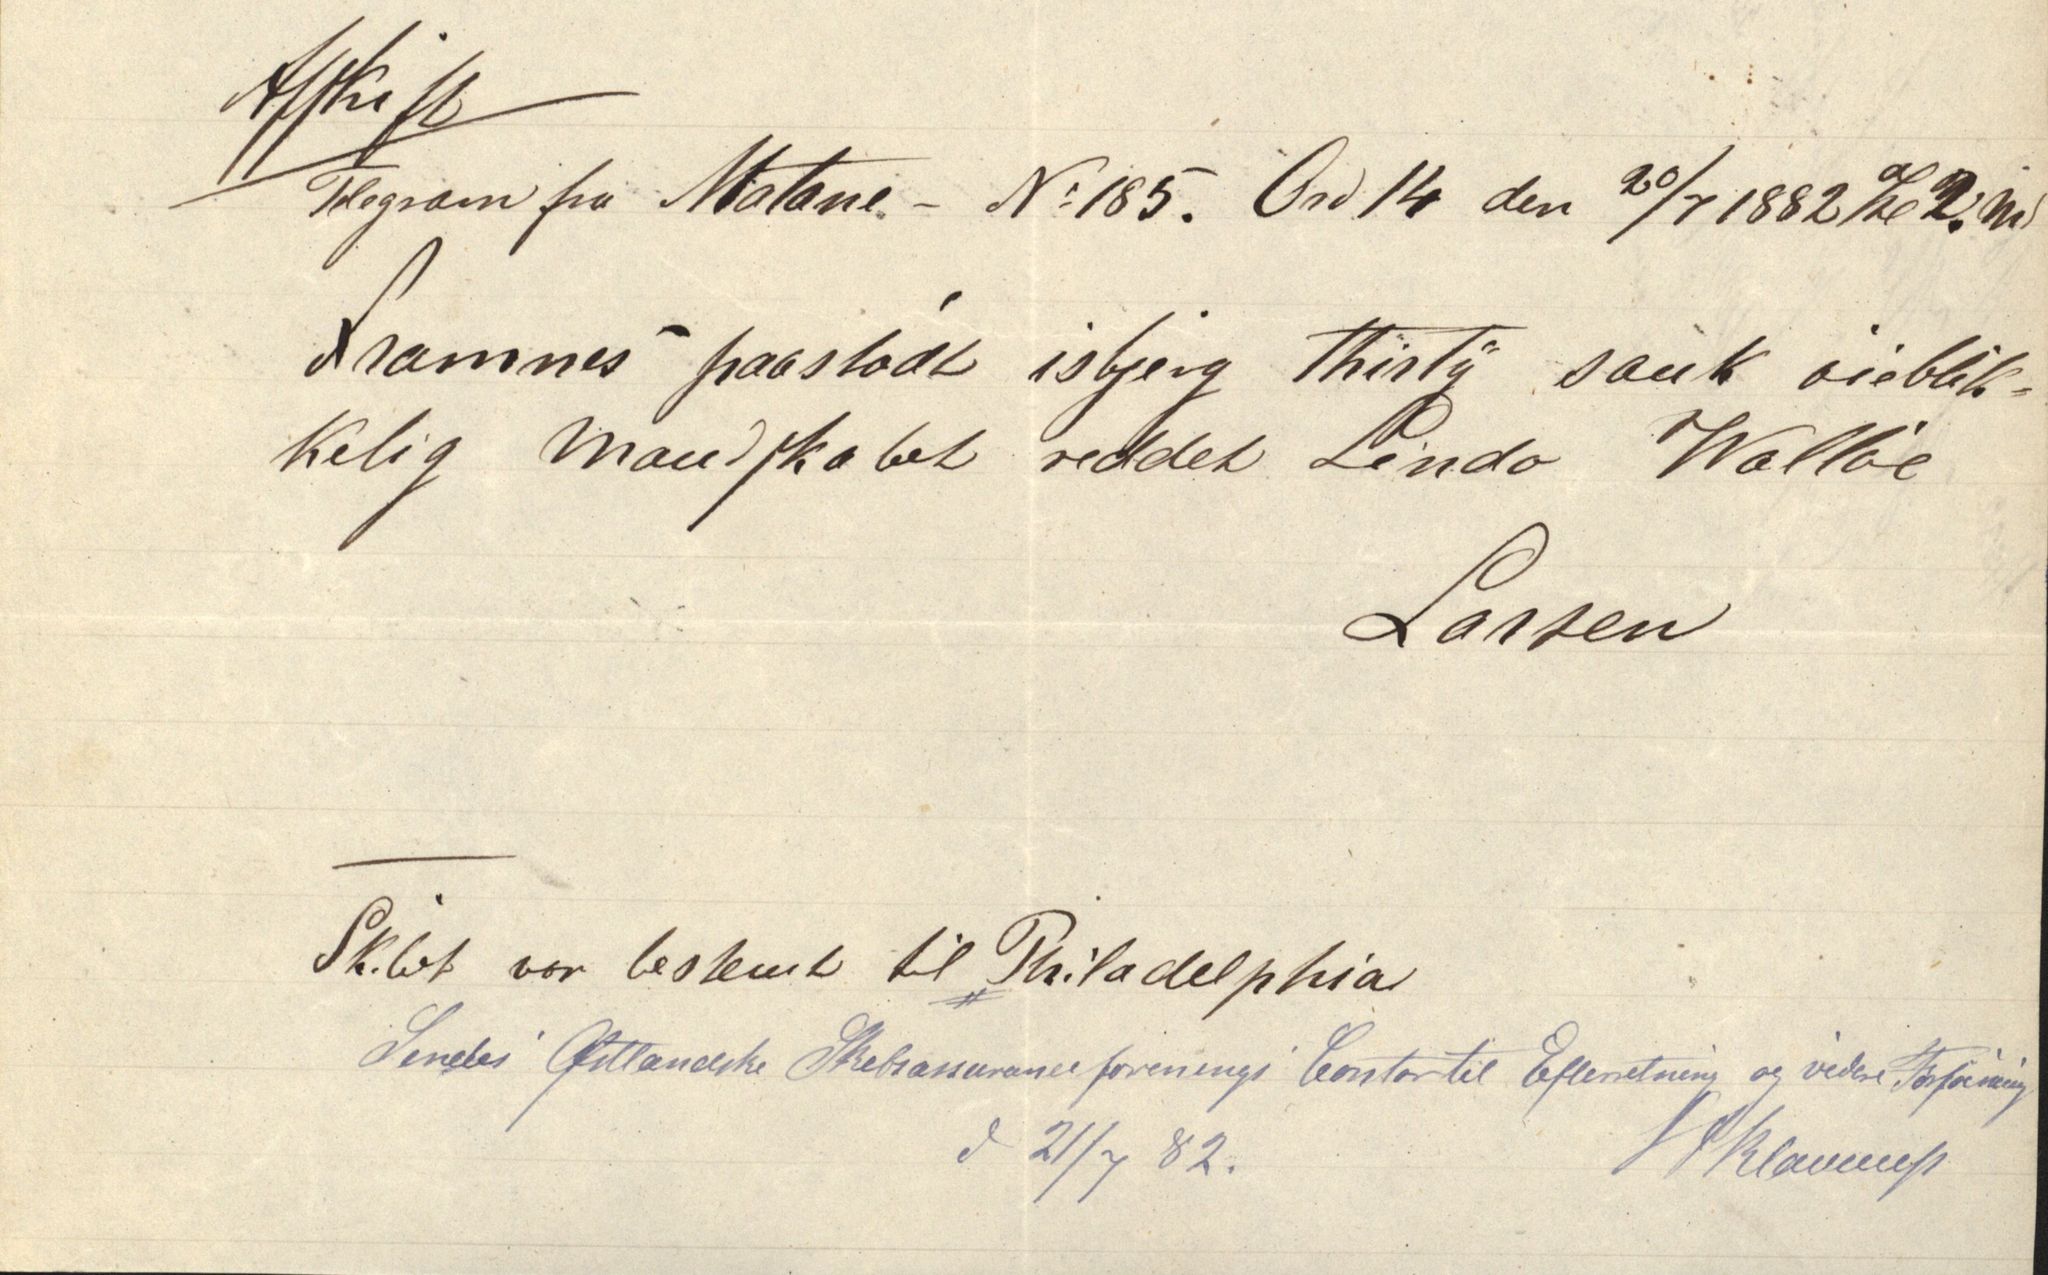 Afskrift
Telegram fra Matane - No: 185. Ord 14 den 20/7 1882 Kl 2. M
Framnes paastödt isbjerg thirty sank oieblik=
kelig Mandskabet reddet Linda Wallöe
Larsen
Skibet var bestemt til Philadelphia
Sendes Østlandske Skibsassuranceforenings Contor til Efterretning og videre Forföining
d 21/7 82.